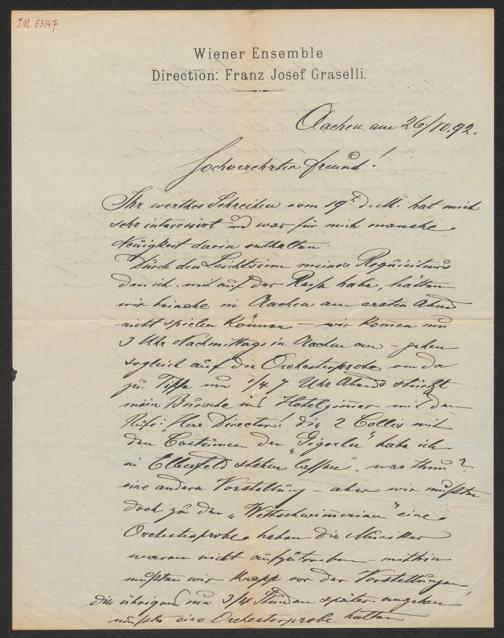 I.N. 53147
Wiener Ensemble
Direction: Franz Josef Graselli.
Aachen am 26/10.92.
Hochverehrter Freund!
Ihr werthes Schreiben vom 19t d. M. hat mich
sehr interessirt und war für mich manche
Neuigkeit darin enthalten.
Durch den Leichtsinn meines Requisiteurs
den ich auf der Reise habe, hätten
wir beinahe in Aachen am ersten Abend
nicht spielen können – wir kommen um
3 Uhr Nachmittags in Aachen an – gehen
sogleich auf die Orchesterprobe
zu Tisch um 1/4 7 Uhr Abends stürzt
mein Bursche ins Hotelzimmer mit dem
Rufe: Herr Director! die 2 Collis mit
den Costümen der „Gigerln" habe ich
in Elberfeld stehen lassen". was thun?
eine andere Vorstellung – aber wir mußten
doch zu den „Wettschwimmerinen" eine
Orchesterprobe haben die Musiker
waren nicht aufzutreiben – mithin
mußten wir knapp vor der Vorstellung
die übrigens um 3/4 Stunden später angehen
mußte eine Orchesterprobe halten